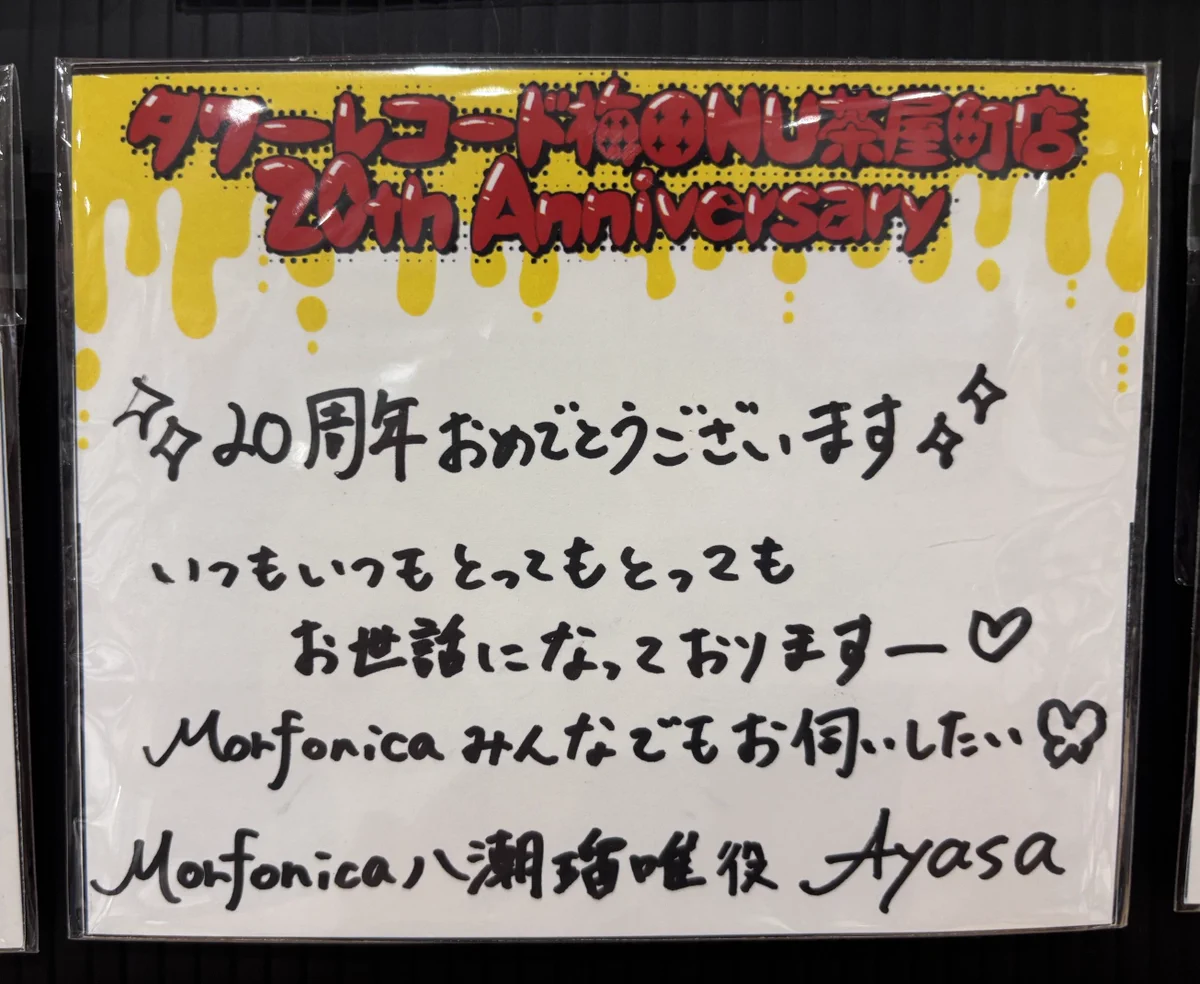 タワーレコード梅田NU茶屋町店
20th Anniversary
20周年おめでとうございます
いつもいつもとってもとっても
お世話になっておりますー♡
Morfonicaみんなでもお伺いしたい
Morfonica八潮瑠唯役 Ayasa